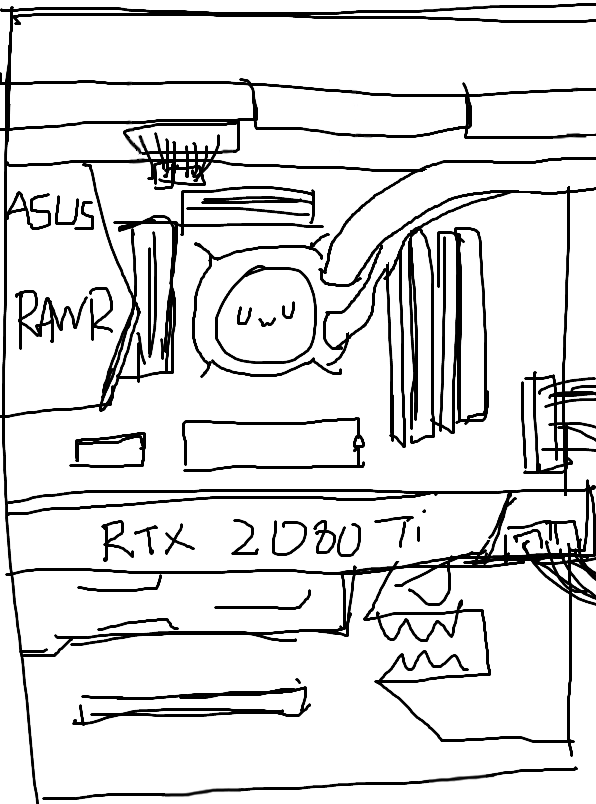 ASUS
RAWR
UwU
RTX 2080 Ti